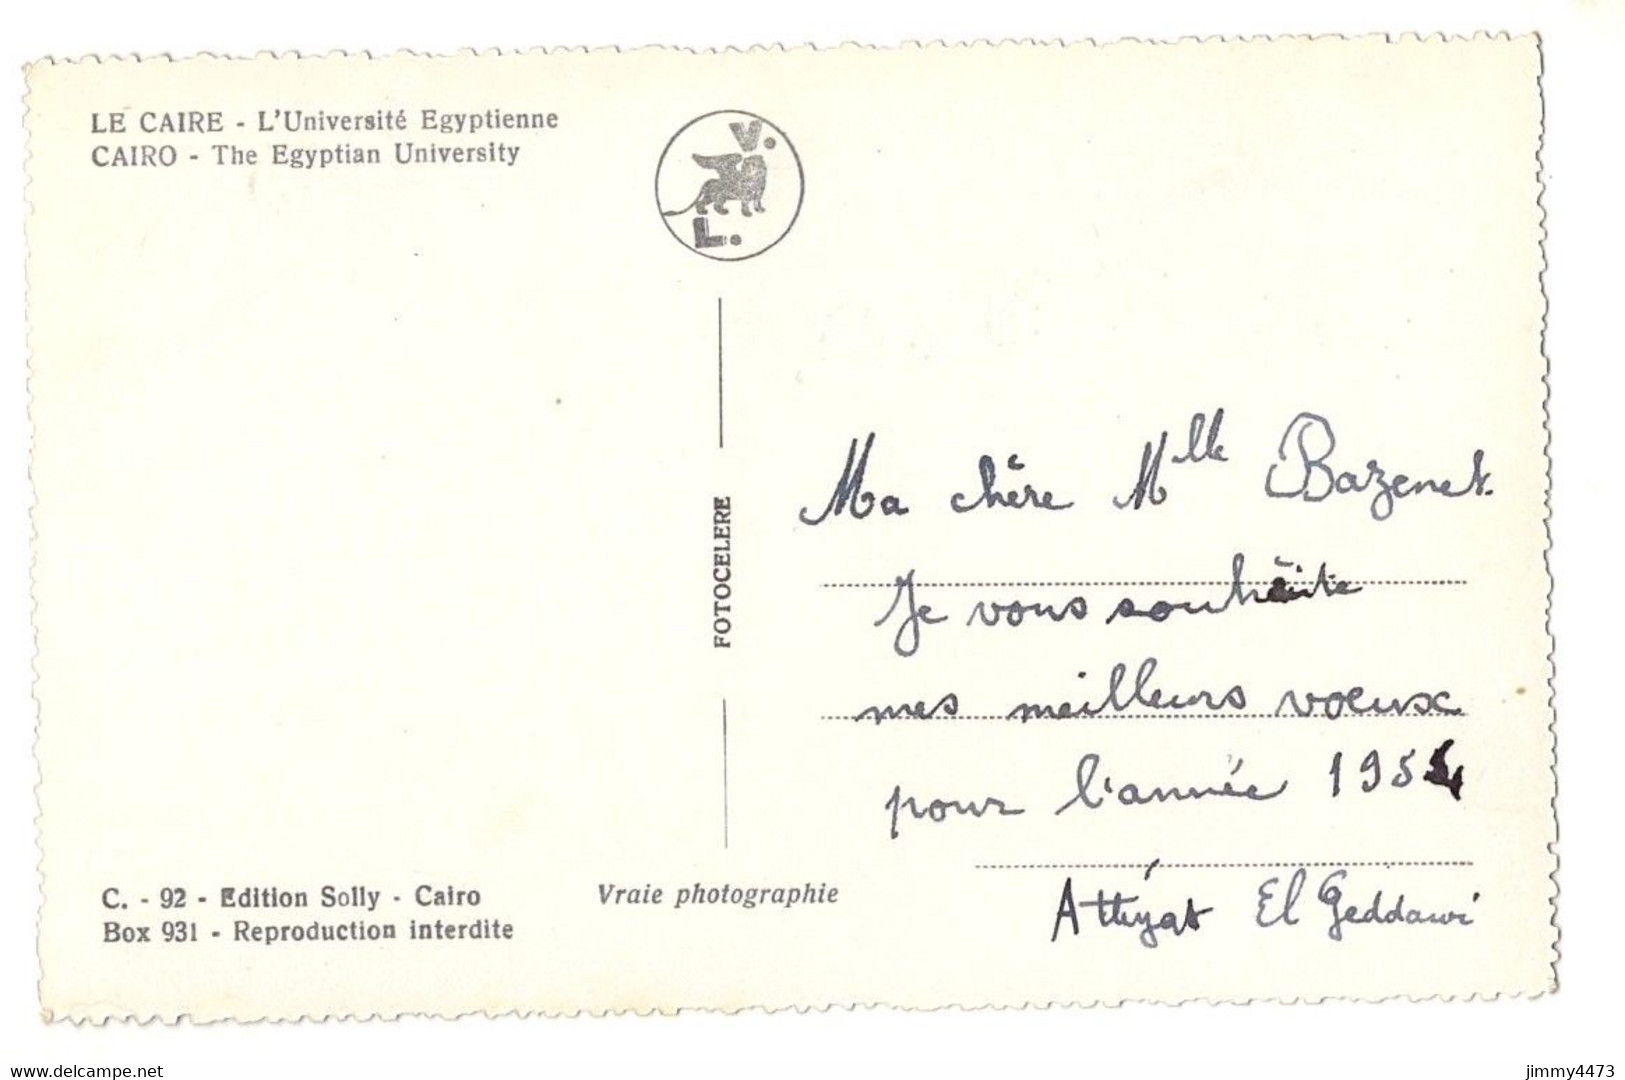 LE CAIRE - L'Université Egyptienne
CAIRO - The Egyptian University
V.
L.
FOTOCELERE
Ma chère Mlle Bazenet.
Je vous souhaite
mes meilleurs voeux
pour l'année 1954
Attiyat El Geddawi
C. - 92 - Edition Solly - Cairo
Box 931 - Reproduction interdite
Vraie photographie
www.delcampe.net
jimmy4473